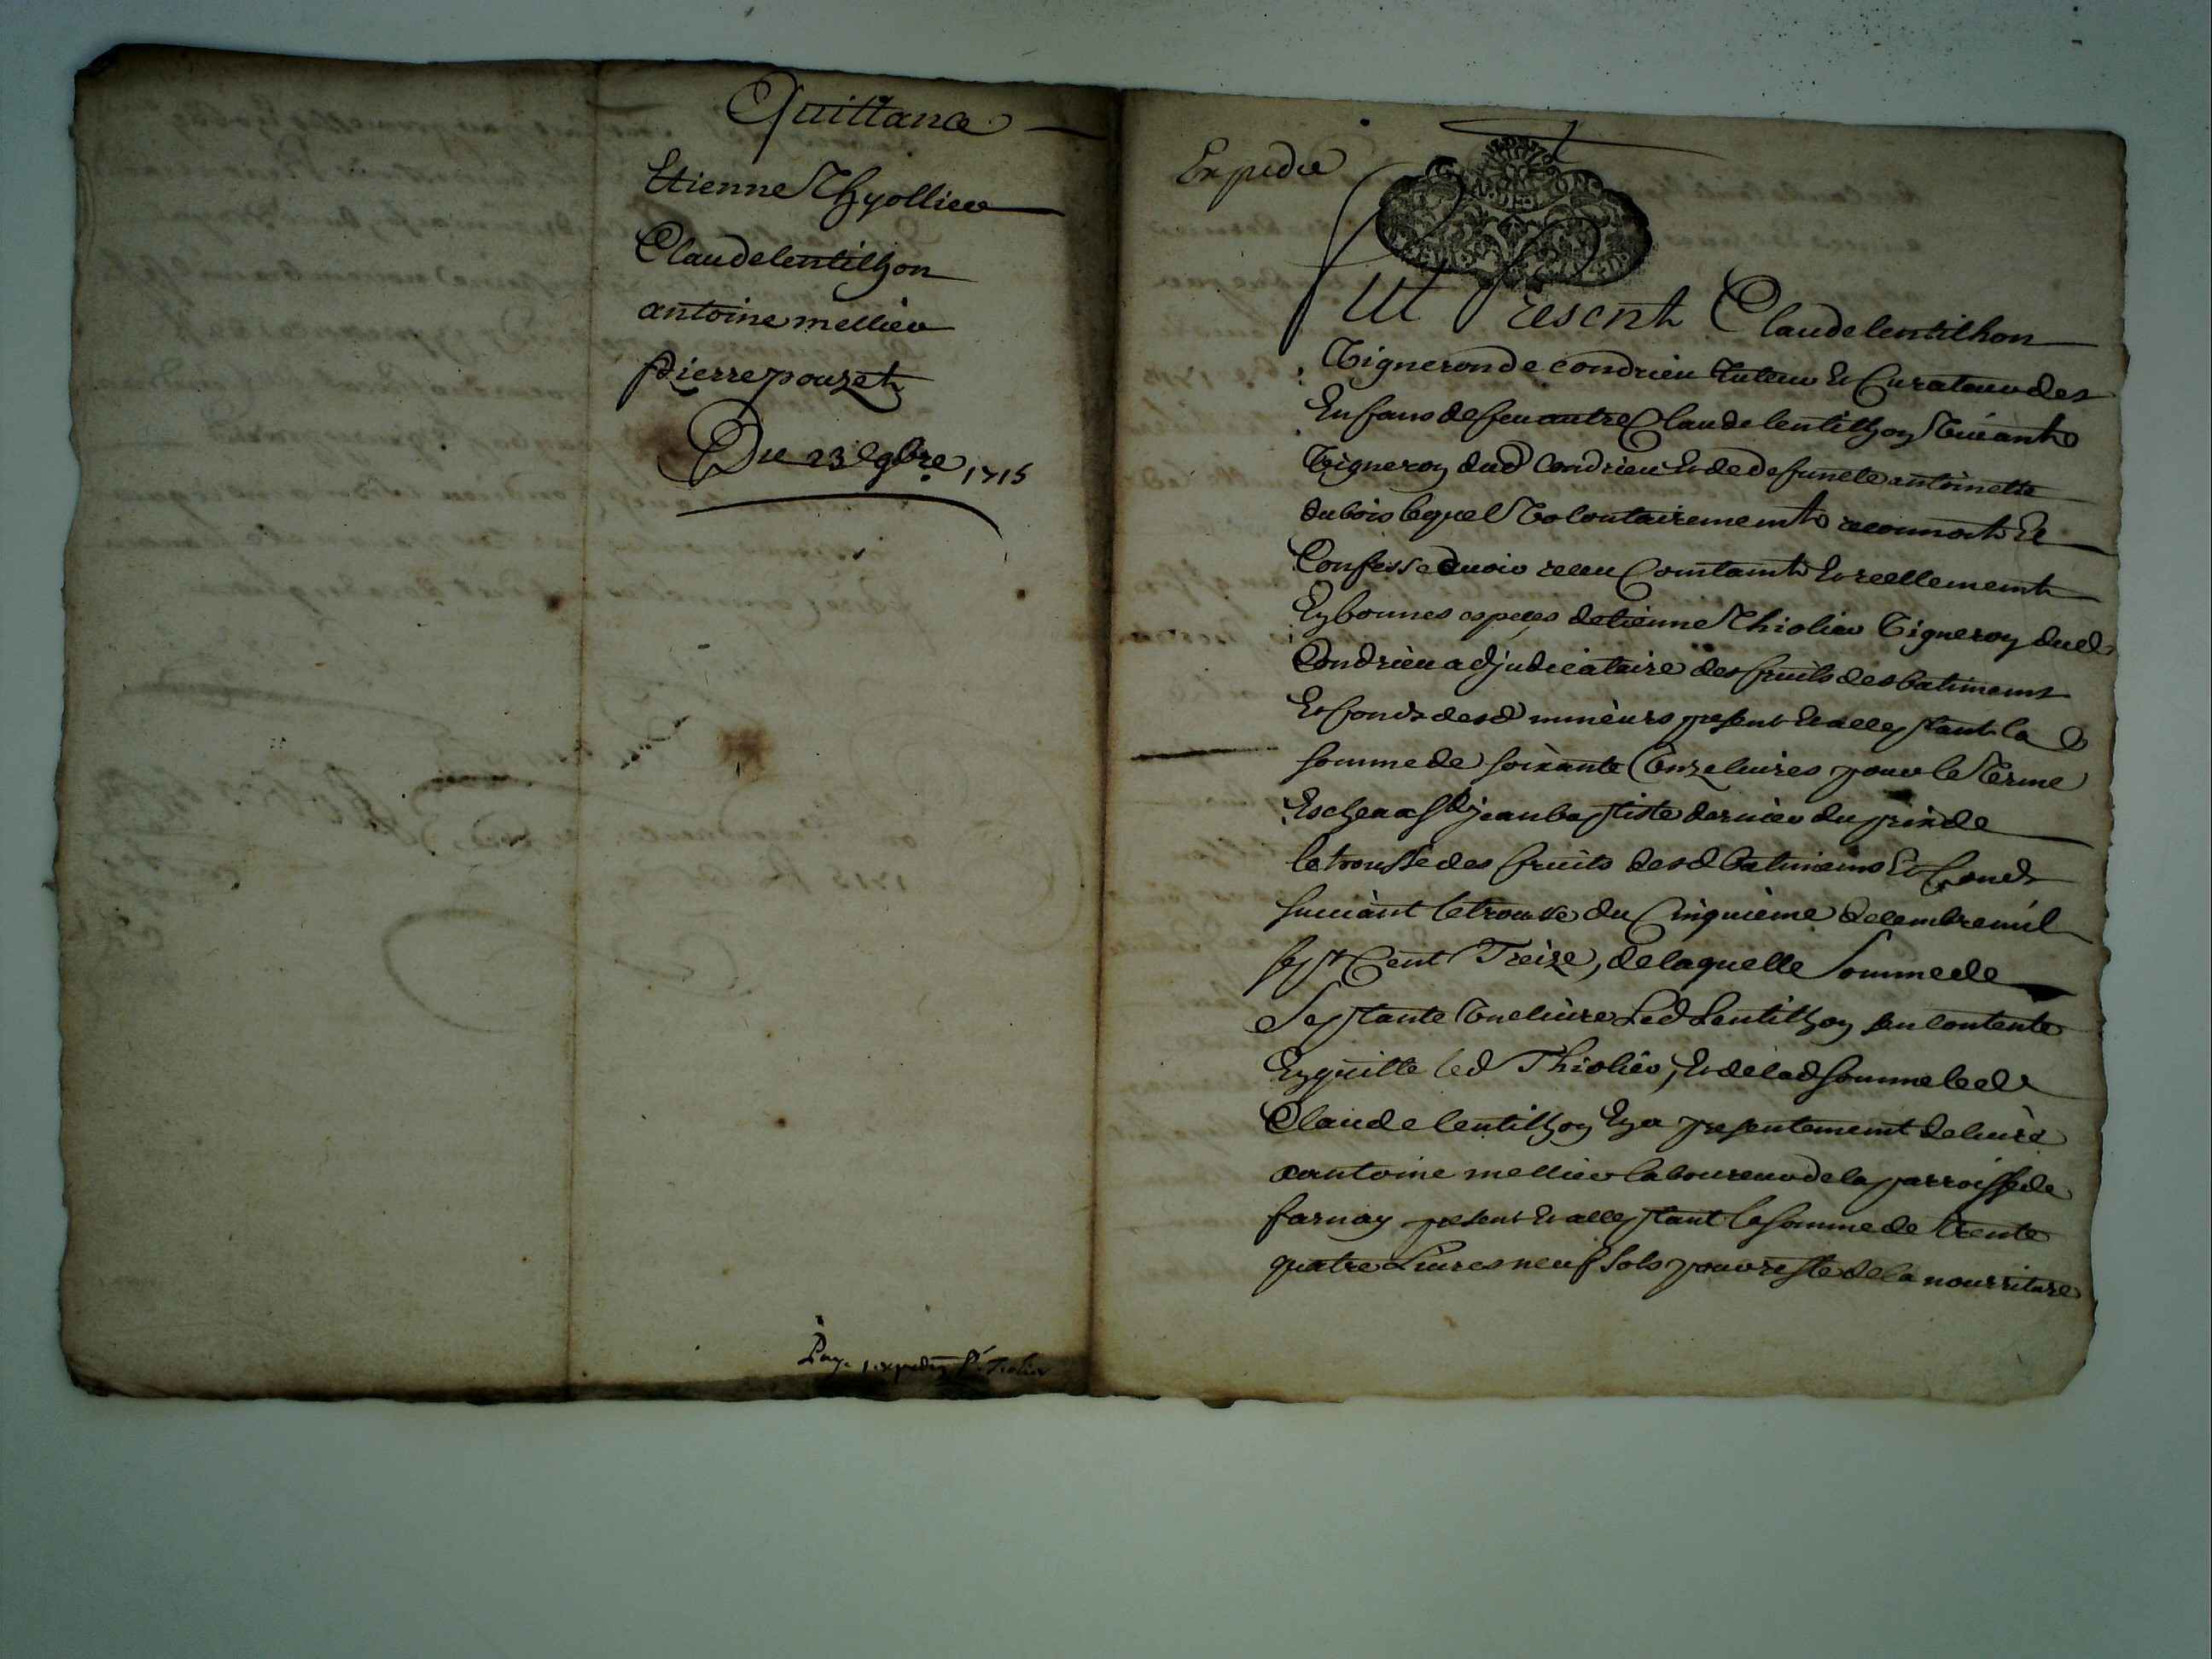 Quittance
Etienne Thyollier
Claude lentilhon
antoine mellier
Pierre pouzet
Du 23e 9bre 1715
Expedie
Fut Present Claude lentilhon
Vigneron de condrieu tuteur & Curateur des
Enfans de feu autre Claude lentilhon Vivant
Vigneron dud Condrieu & de defuncte antoinette
dubois lequel Volontairement reconnoit &
Confesse avoir receu Comtamt & reellement
En bonnes especes detienne Thiolier Vigneron dud
Condrieu adjudicataire des fruits des batimens
& fonds desd mineurs present & acceptant la
somme de soixante Onze livres pour le Terme
Escheu a St jean baptiste dernier du prix de
la trousse des fruits desd batimens & fonds
suivant la trousse du Cinquieme decembre mil
sept Cent Treize, de laquelle somme de
Septante Une livre Led Lentilhon sen contente
En quitte led Thiolier, & de lad somme led
Claude lentilhon En a presentement delivré
a antoine mellier laboureur de la parroisse de
farnay present & acceptant la somme de trente
quatre Livres neuf sols pour reste de la nourriture